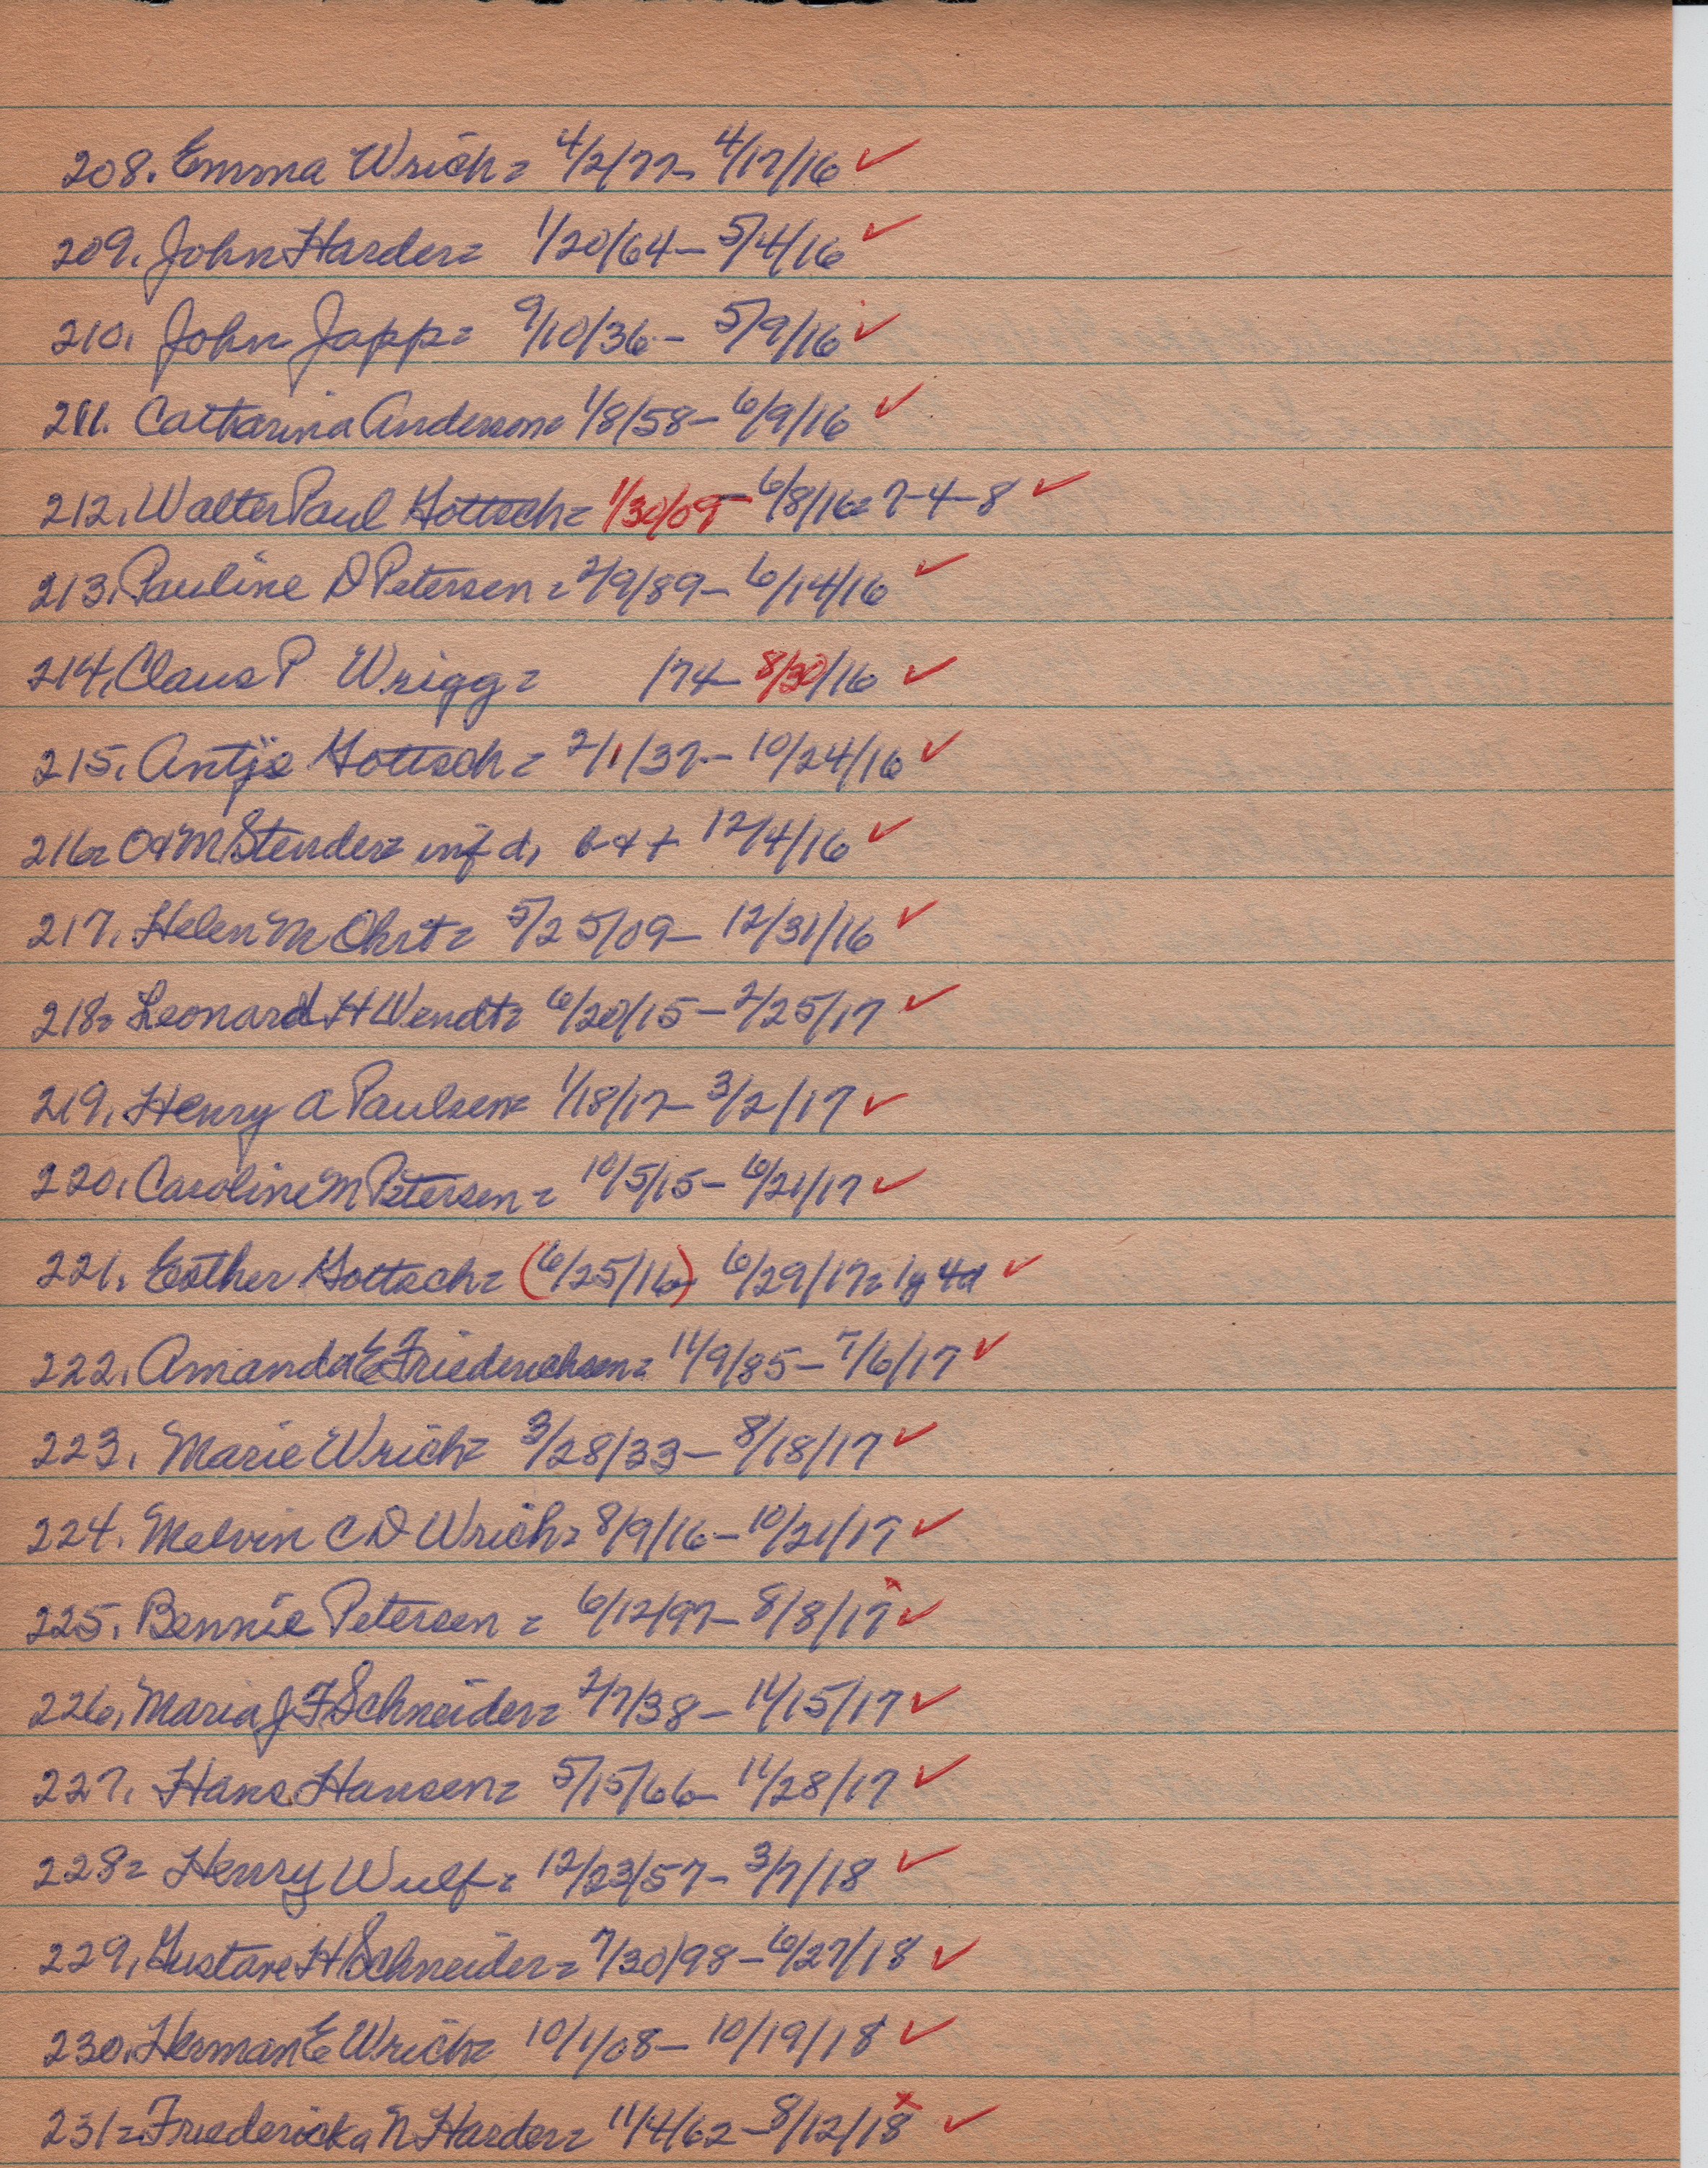 208. Emma Wrich= 4/2/77- 4/17/16 ✓
209. John Harder= 1/20/64- 5/4/16 ✓
210. John Japp= 9/10/36- 5/9/16 ✓
211. Catharina Anderson= 1/8/58- 6/9/16 ✓
212. Walter Paul Gottsch= 1/30/09- 6/8/16= 7-4-8 ✓
213. Pauline D Petersen= 2/9/89- 6/14/16 ✓
214. Claus P Wrigg= /74- 8/30/16 ✓
215. Antje Gottsch= 2/1/37- 10/24/16 ✓
216= O&M Stender inf d, b & + 12/4/16 ✓
217. Helen M Ohrt= 5/25/09- 12/31/16 ✓
218= Leonard H Wendt= 6/20/15- 2/25/17 ✓
219. Henry A Paulsen= 1/18/17- 3/2/17 ✓
220. Caroline M Petersen= 10/5/15- 6/21/17 ✓
221. Esther Gottsch= (6/25/16) 6/29/17= 1y 4d ✓
222. Amanda E Friederichsen= 11/9/85- 7/6/17 ✓
223. Marie Wrich= 3/28/33- 8/18/17 ✓
224. Melvin C D Wrich= 8/9/16- 10/21/17 ✓
225. Bennie Petersen= 6/12/97- 8/8/17 ✓
226. Maria J F Schneider= 2/7/38- 11/15/17 ✓
227. Hans Hansen= 5/15/66- 11/28/17 ✓
228= Henry Wulf= 12/23/57- 3/7/18 ✓
229. Gustave H Schneider= 7/30/98- 6/27/18 ✓
230. Herman E Wrich= 10/1/08- 10/19/18 ✓
231= Friedericka N Harder= 11/4/62- 8/12/18 x ✓